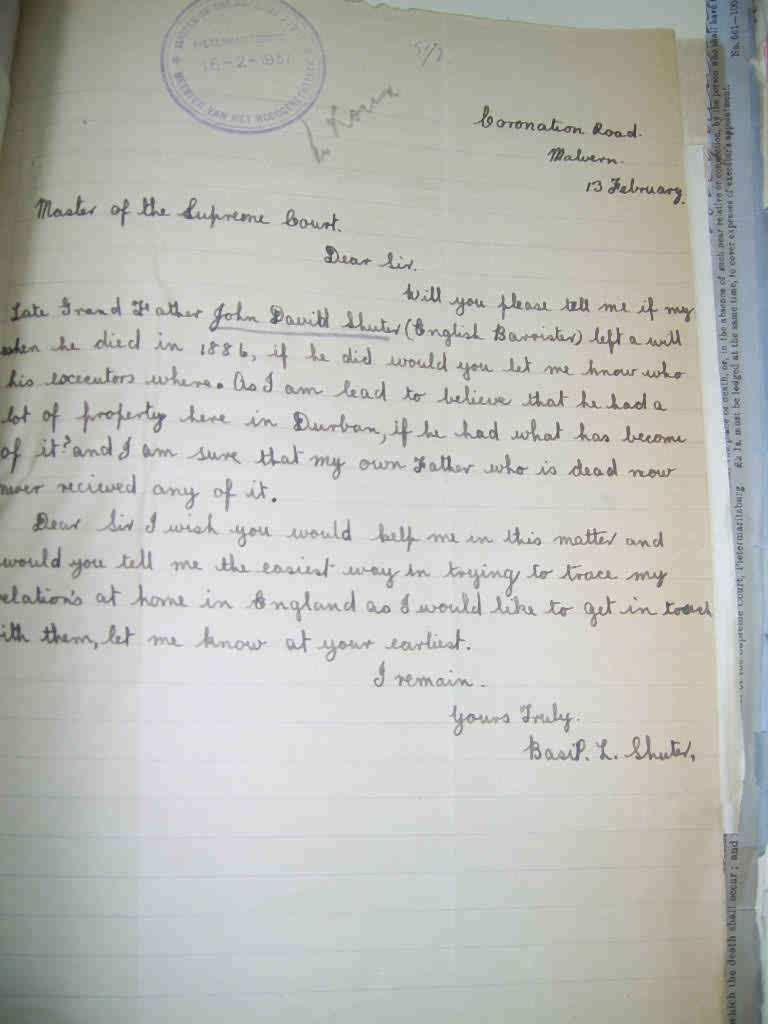 MASTER OF THE
PIETERMARITZBURG
16-2-1937
MEESTER VAN HET HOOGGERECHTSHOF
Coronation Road.
Malvern.
13 February.
Master of the Supreme Court.
Dear Sir.
Will you please tell me if my
Late Grand Father John Davitd Shuter (English Barrister) left a will
when he died in 1886, if he did would you let me know who
his excecutors where. As I am lead to believe that he had a
lot of property here in Durban, if he had what has become
of it? and I am sure that my own Father who is dead now
never recieved any of it.
Dear Sir I wish you would help me in this matter and
would you tell me the easiest way in trying to trace my
relation's at home in England as I would like to get in touch
with them, let me know at your earliest.
I remain.
Yours Truly.
Basil. L. Shuter,
No. 661—100
place of death, or, in the absence of such near relative or connection, by the person who shall have
£2 1s. must be lodged at the same time, to cover expenses of executor's appointment.
of the Supreme Court, Pietermaritzburg
which the death shall occur; and